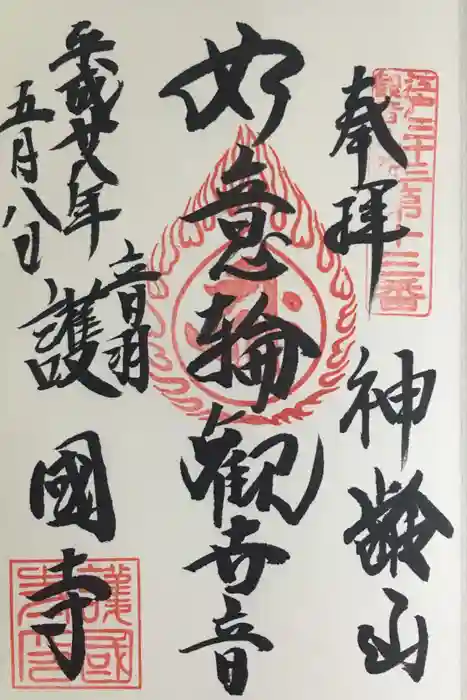 江戸三十三ヶ所十三番
奉拝
神齢山
如意輪観世音
音羽
護國寺
平成廿八年
五月八日
護國